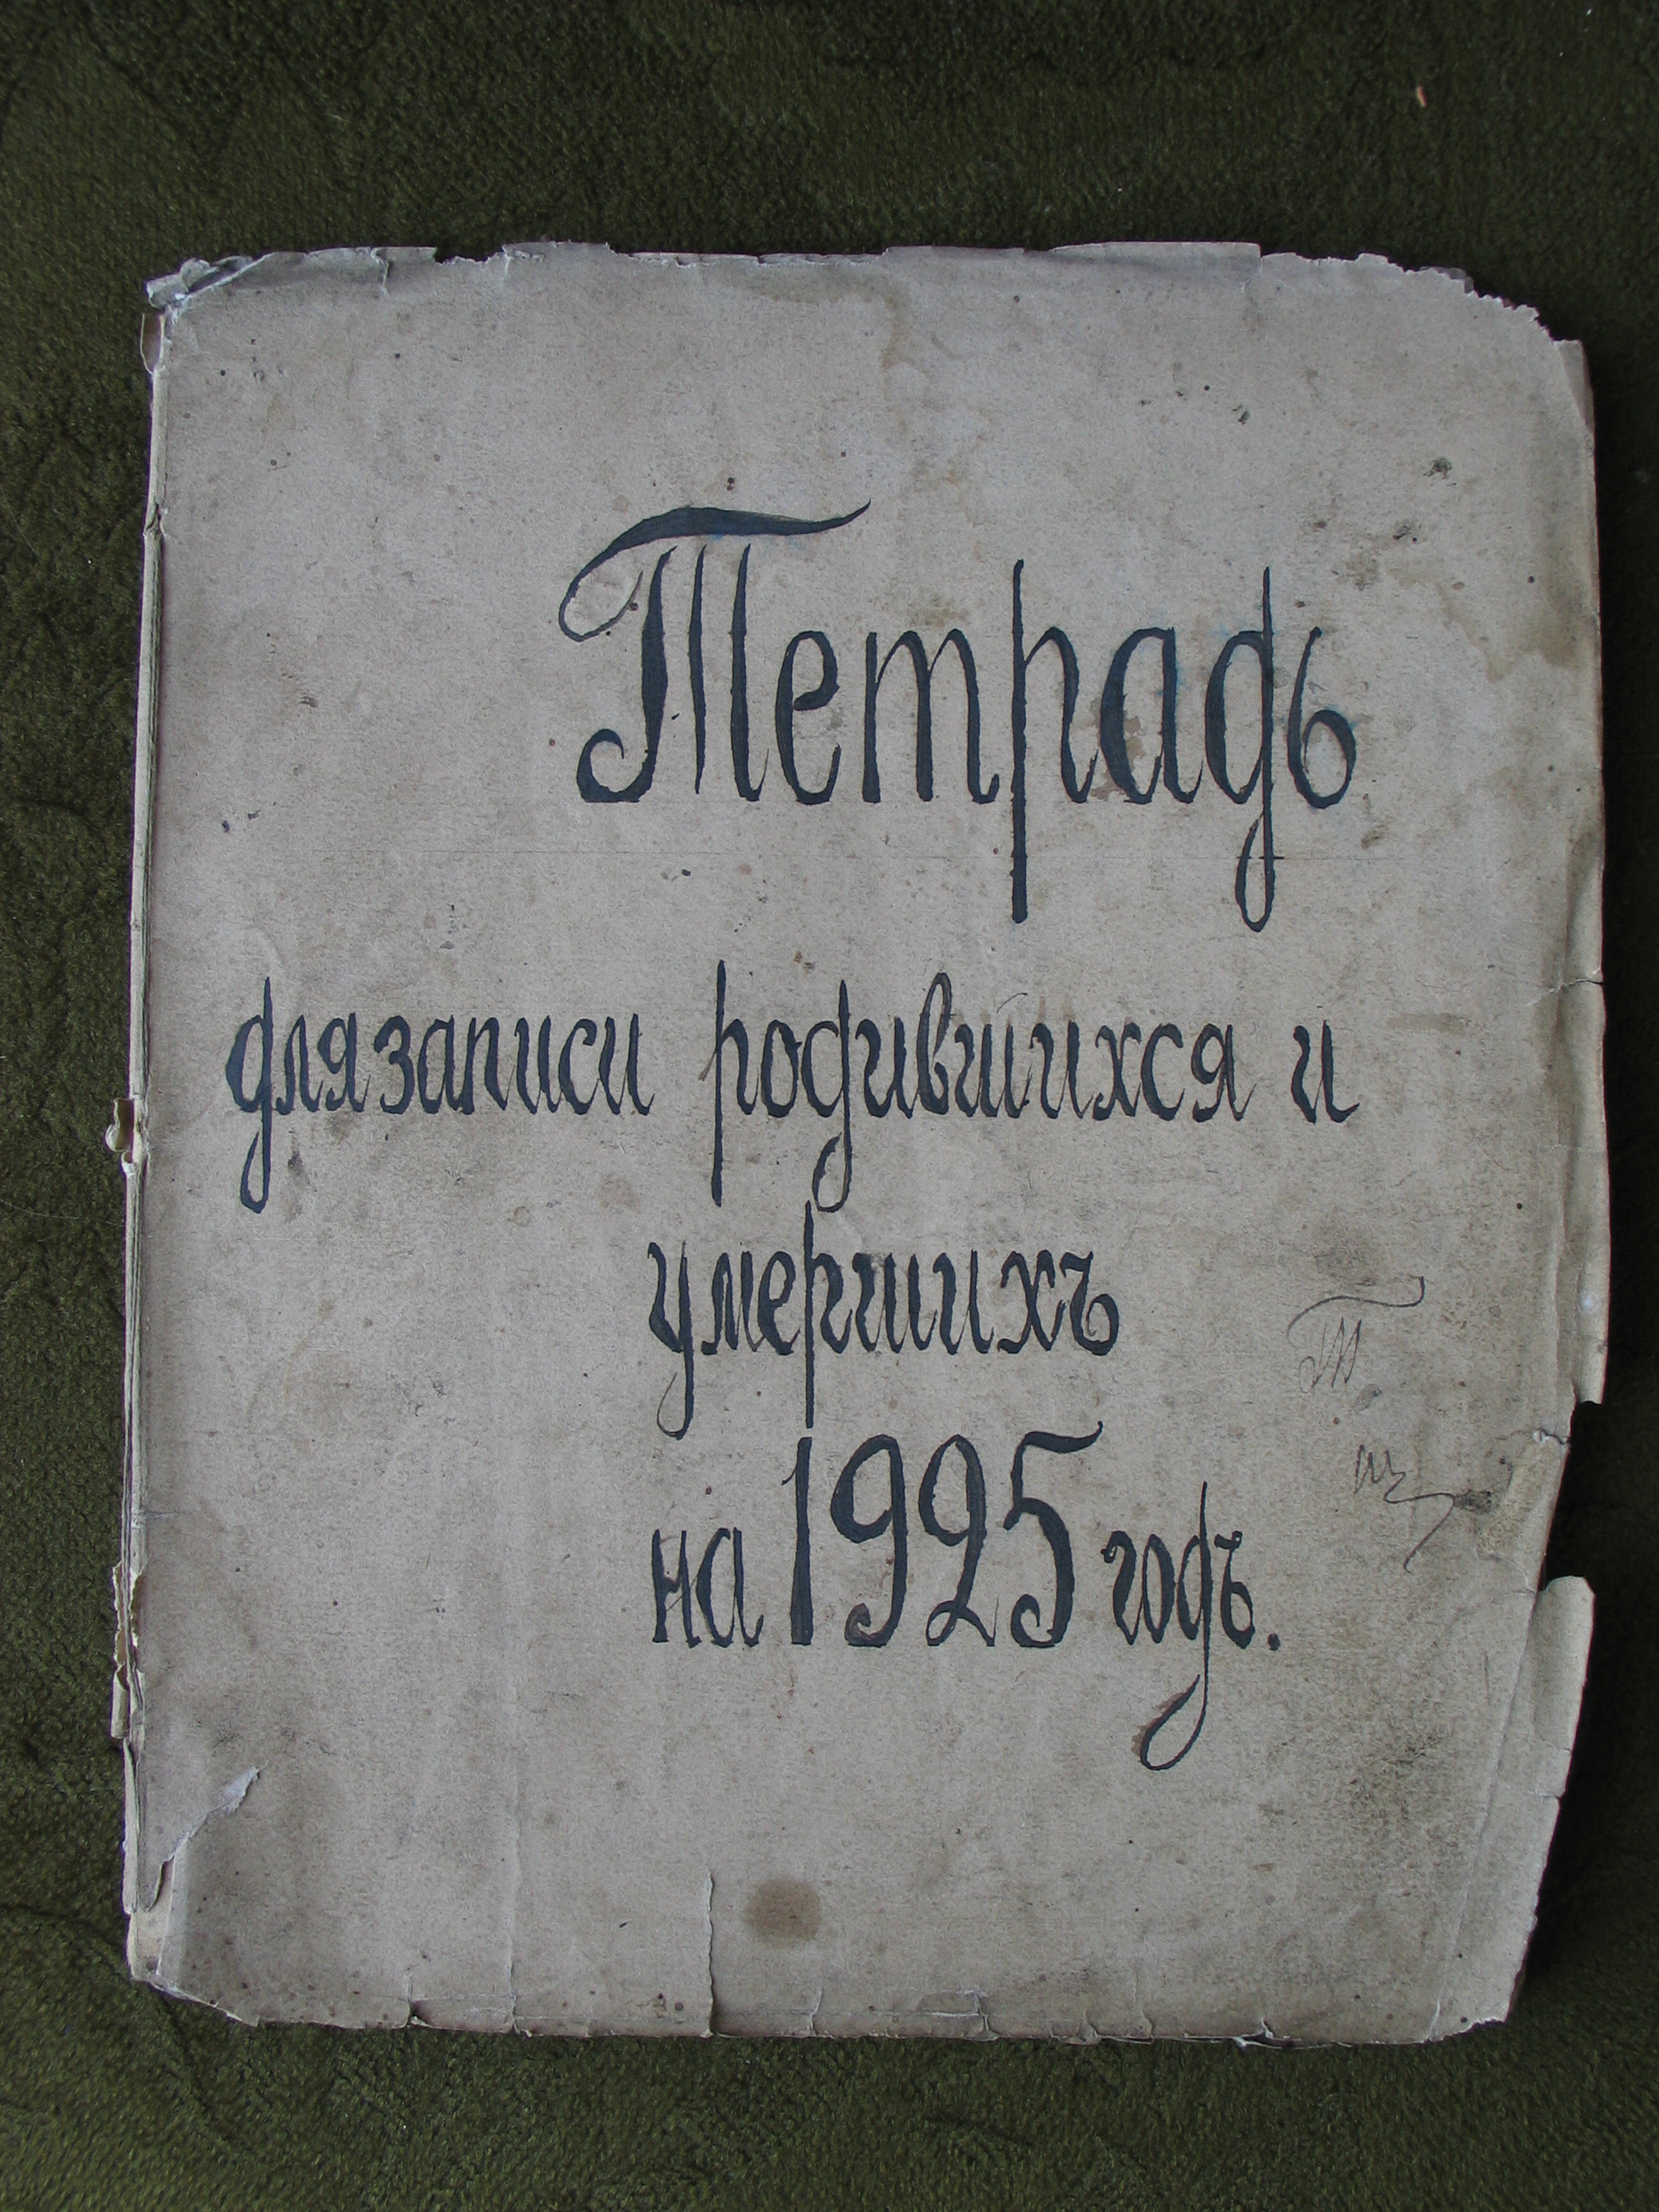 Тетрадь
для записи родившихся и
умерших​ъ
на 1925 годъ.
Т